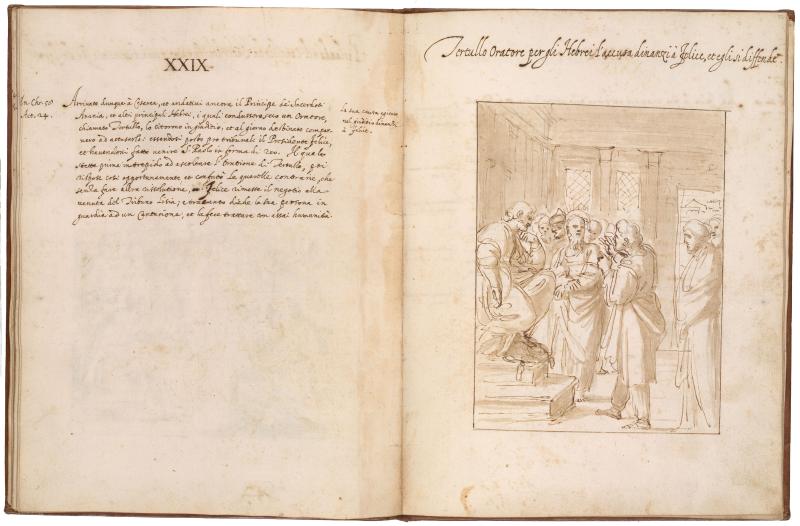 XXIX.
An. Chr. 58
Act. 24.
Arrivato dunque à Cesarea, et andativi ancora il Principe de' Sacerdoti
Anania, et altri principali Hebrei, i quali condussero seco un Oratore,
chiamato Tertullo, lo citorno in giuditio, et al giorno destinato compar-
nero ad accusarlo: essendosi posto pro tribunali il Presidente Felice,
et havendosi fatto venire S. Paolo in forma di reo. Il quale
stette prima intrepido ad ascoltare l'Oratione di Tertullo, poi
rispose così opportunamente et confutò le querelle contrarie, che
senza fare altra rissolutione, Felice rimesse il negotio alla
venuta del Tribuno Lisia; e tra tanto diede la sua persona in
guardia ad un Centurione, et la fece trattare con assai humanità.
La sua causa
nel giuditio dinanzi
à Felice.
Tertullo Oratore per gli Hebrei l'accusa dinanzi à Felice, et egli si diffende.